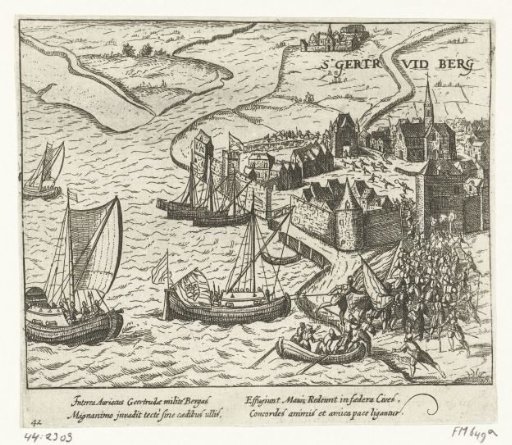 S. GERTR VID BERG
Interea Auriacus Gertrudæ milite Bergas
Magnanimo invadit tectè sine cædibus ullis,
Effugiunt Mauri, Redeunt in fædera Cives,
Concordes animis et amica pace ligantur.
42
44:2303
FM 649a